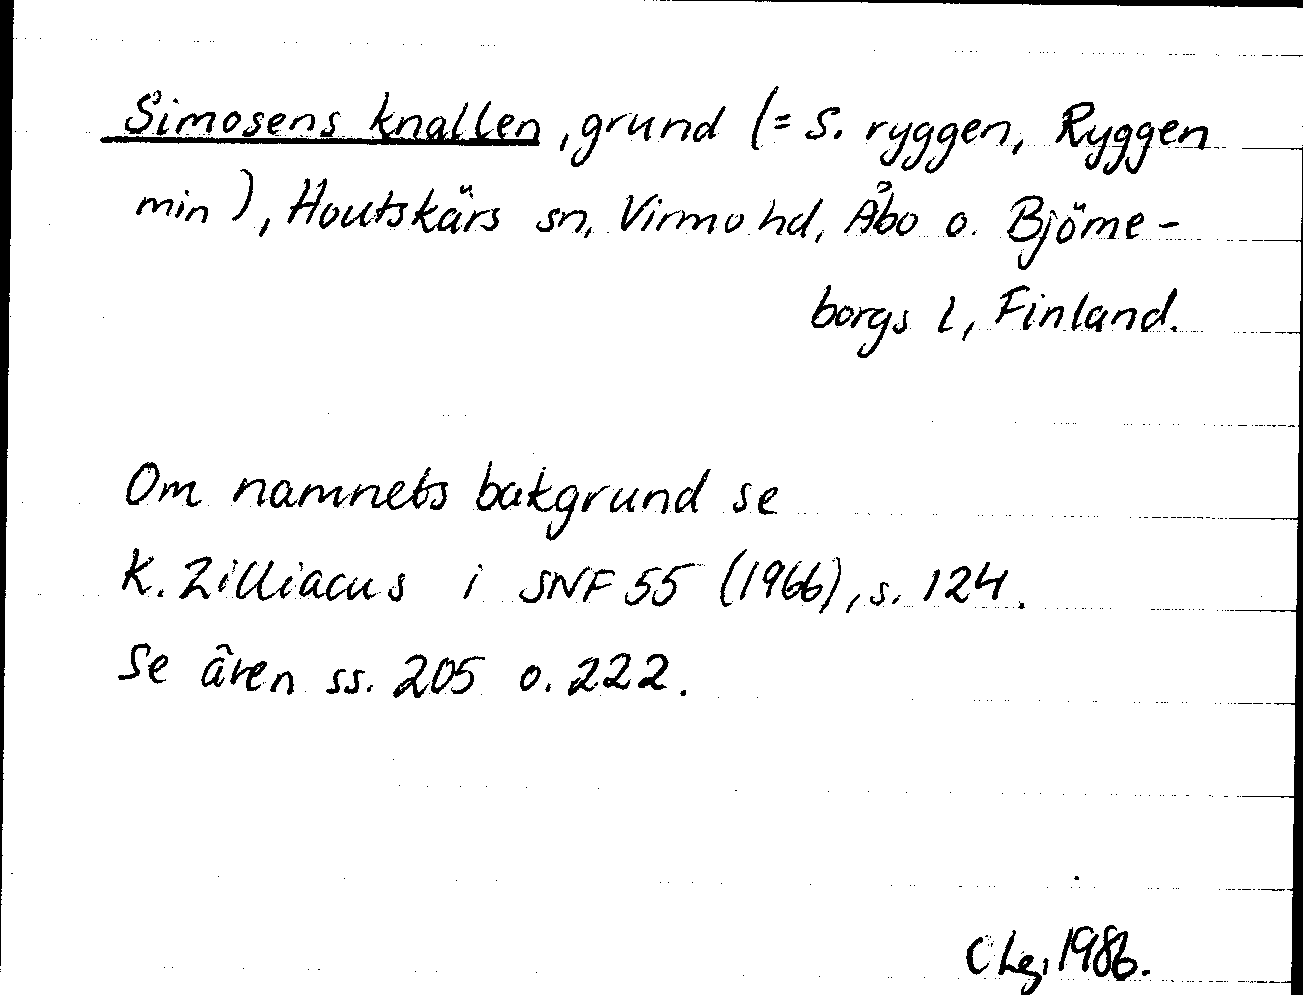 Simosens knallen, grund (= S. ryggen, Ryggen
min), Houtskärs sn, Virmo hd, Åbo o. Björne-
borgs l, Finland.
Om namnets bakgrund se
K. Zilliacus i SNF 55 (1966), s. 124.
Se även ss. 205 o. 222.
CLg, 1986.